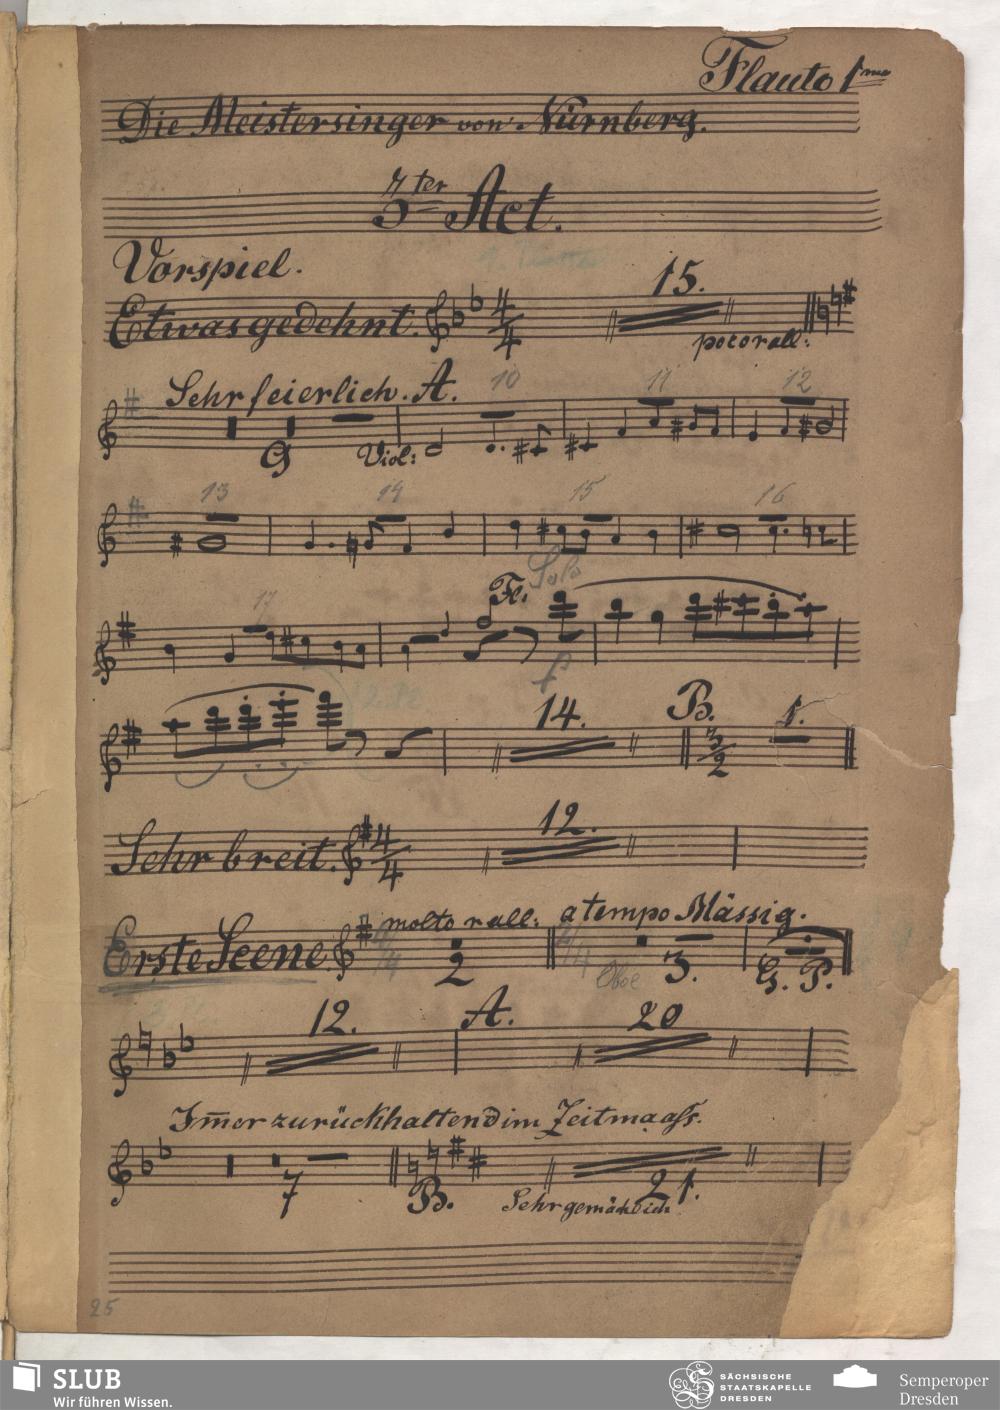 Flauto 1mo
Die Meistersinger von Nürnberg.
3ter Act.
Vorspiel.
15.
Etwas gedehnt. 4/4
poco rall:
Sehr feierlich. A. 10 11 12
9 Viol:
13 14 15 16
Solo
17 Fl.
f
2. Fl.
14. B. 1.
3/2
12.
Sehr breit. 4/4
molto rall: a tempo Mässig.
Erste Scene. 4/4 2 4/4 Oboe 3. G. P.
12. A. 20
Im̅er zurückhaltend im Zeitmaass.
7 B. 21.
Sehr gemächlich
25
SLUB
Wir führen Wissen.
SÄCHSISCHE
STAATSKAPELLE
DRESDEN
Semperoper
Dresden